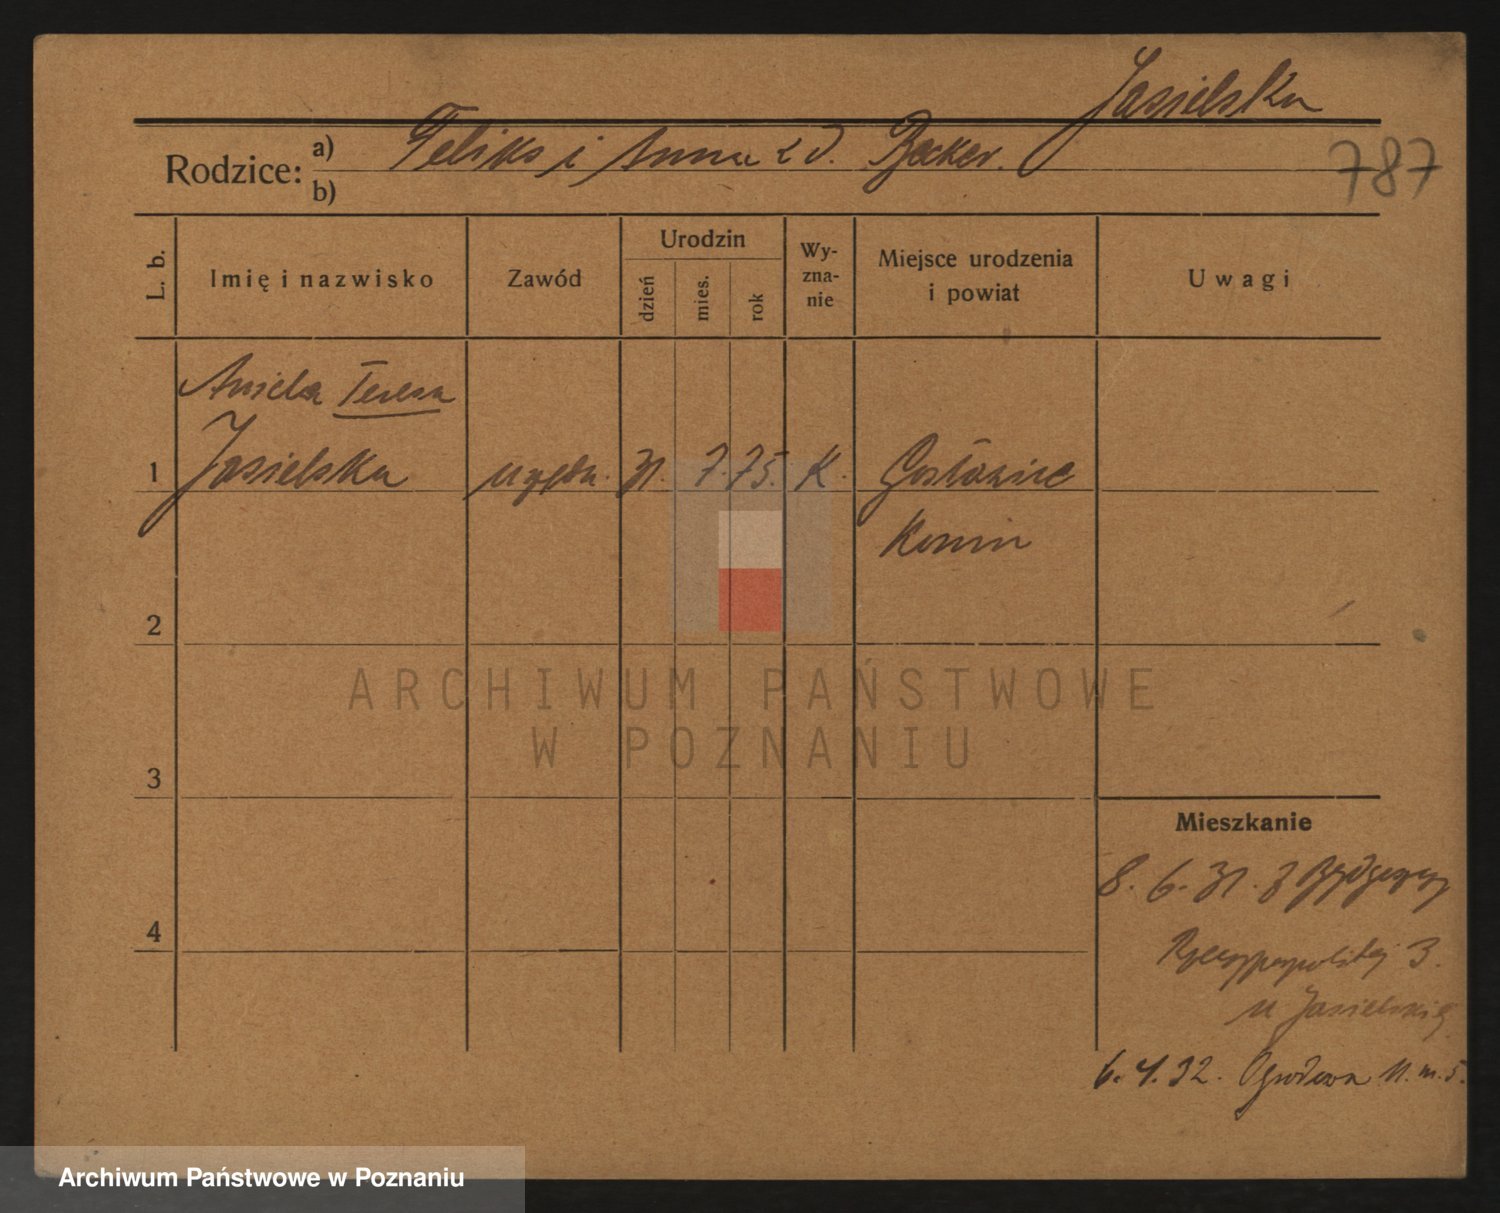 Jasielska
Rodzice: a) Feliks i Anna z d. Becker.
b)
787
L. b.
Imię i nazwisko
Zawód
Urodzin
dzień
mies.
rok
Wy-
zna-
nie
Miejsce urodzenia
i powiat
Uwagi
Aniela Teresa
1 Jasielska urzędn. 31. 7. 75. K. Gosławice
Konin
2
3
4
Mieszkanie
8. 6. 31. z Bydgoszczy
Rzeczypospolitej 3.
u Jasielskiej
6. 4. 32. Ogrodowa 11. m. 5.
ARCHIWUM PAŃSTWOWE
W POZNANIU
Archiwum Państwowe w Poznaniu